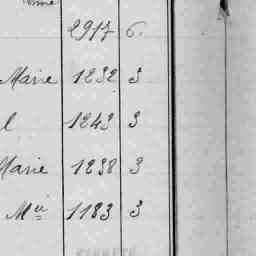 2917 6.
Marie 1232 3
l 1243 3
Marie 1238 3
M<sup>ie</sup> 1183 3